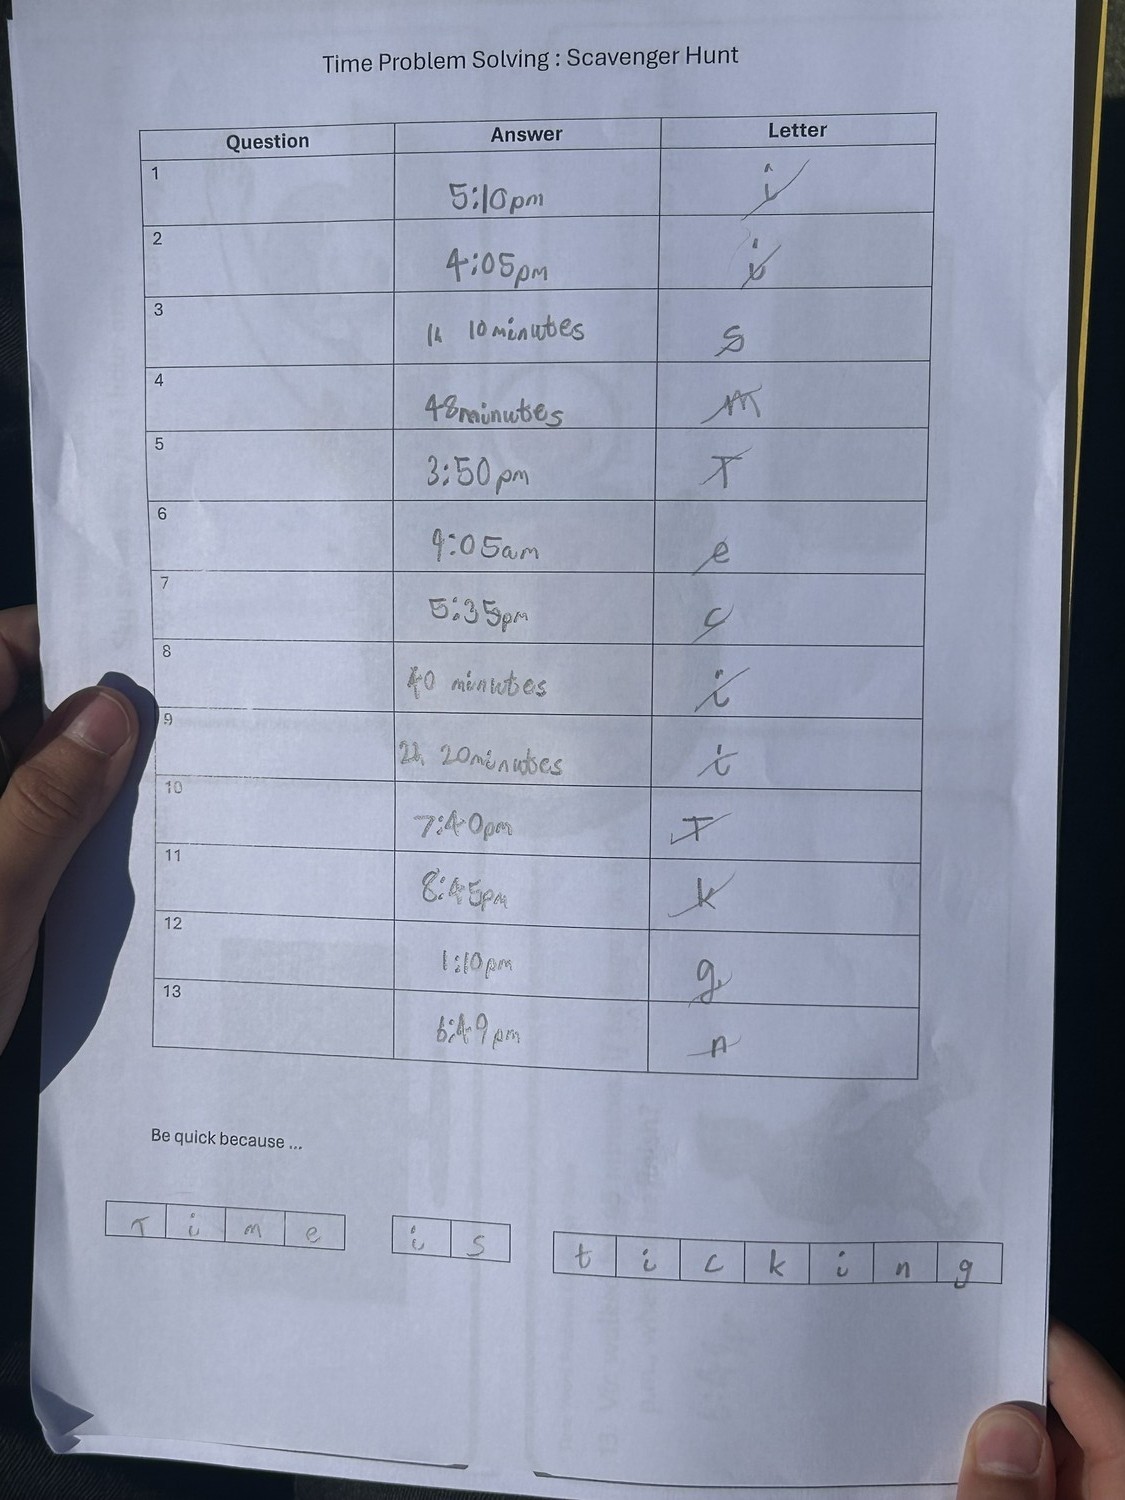 Time Problem Solving : Scavenger Hunt
Question Answer Letter
1 5:10pm i
2 4:05pm i
3 1h 10minutes s
4 48minutes m
5 3:50pm T
6 9:05am e
7 5:35pm c
8 40 minutes i
9 2h 20minutes i
10 7:40pm T
11 8:45pm k
12 1:10pm g
13 6:49pm n
Be quick because ...
T i m e i s t i c k i n g